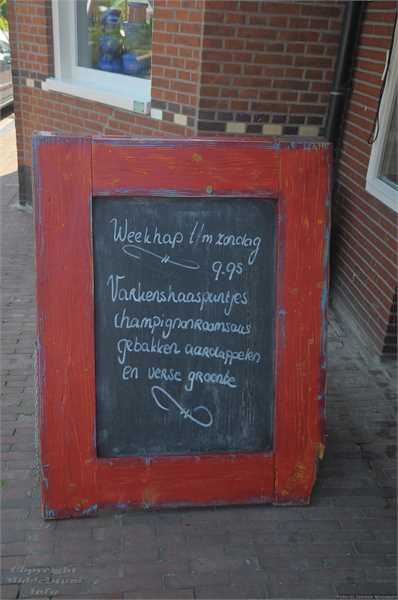 Weekhap t/m zondag
9.95
Varkenshaaspuntjes
champignonroomsaus
gebakken aardappelen
en verse groente
Copyright
Info